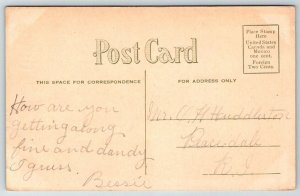 Post Card
THIS SPACE FOR CORRESPONDENCE
FOR ADDRESS ONLY
Place Stamp
Here
United States
Canada and
Mexico
one cent.
Foreign
Two Cents.
How are you
getting along
fine and dandy
I guess.
Bessie
Mr. C H Huddleston
R.I.